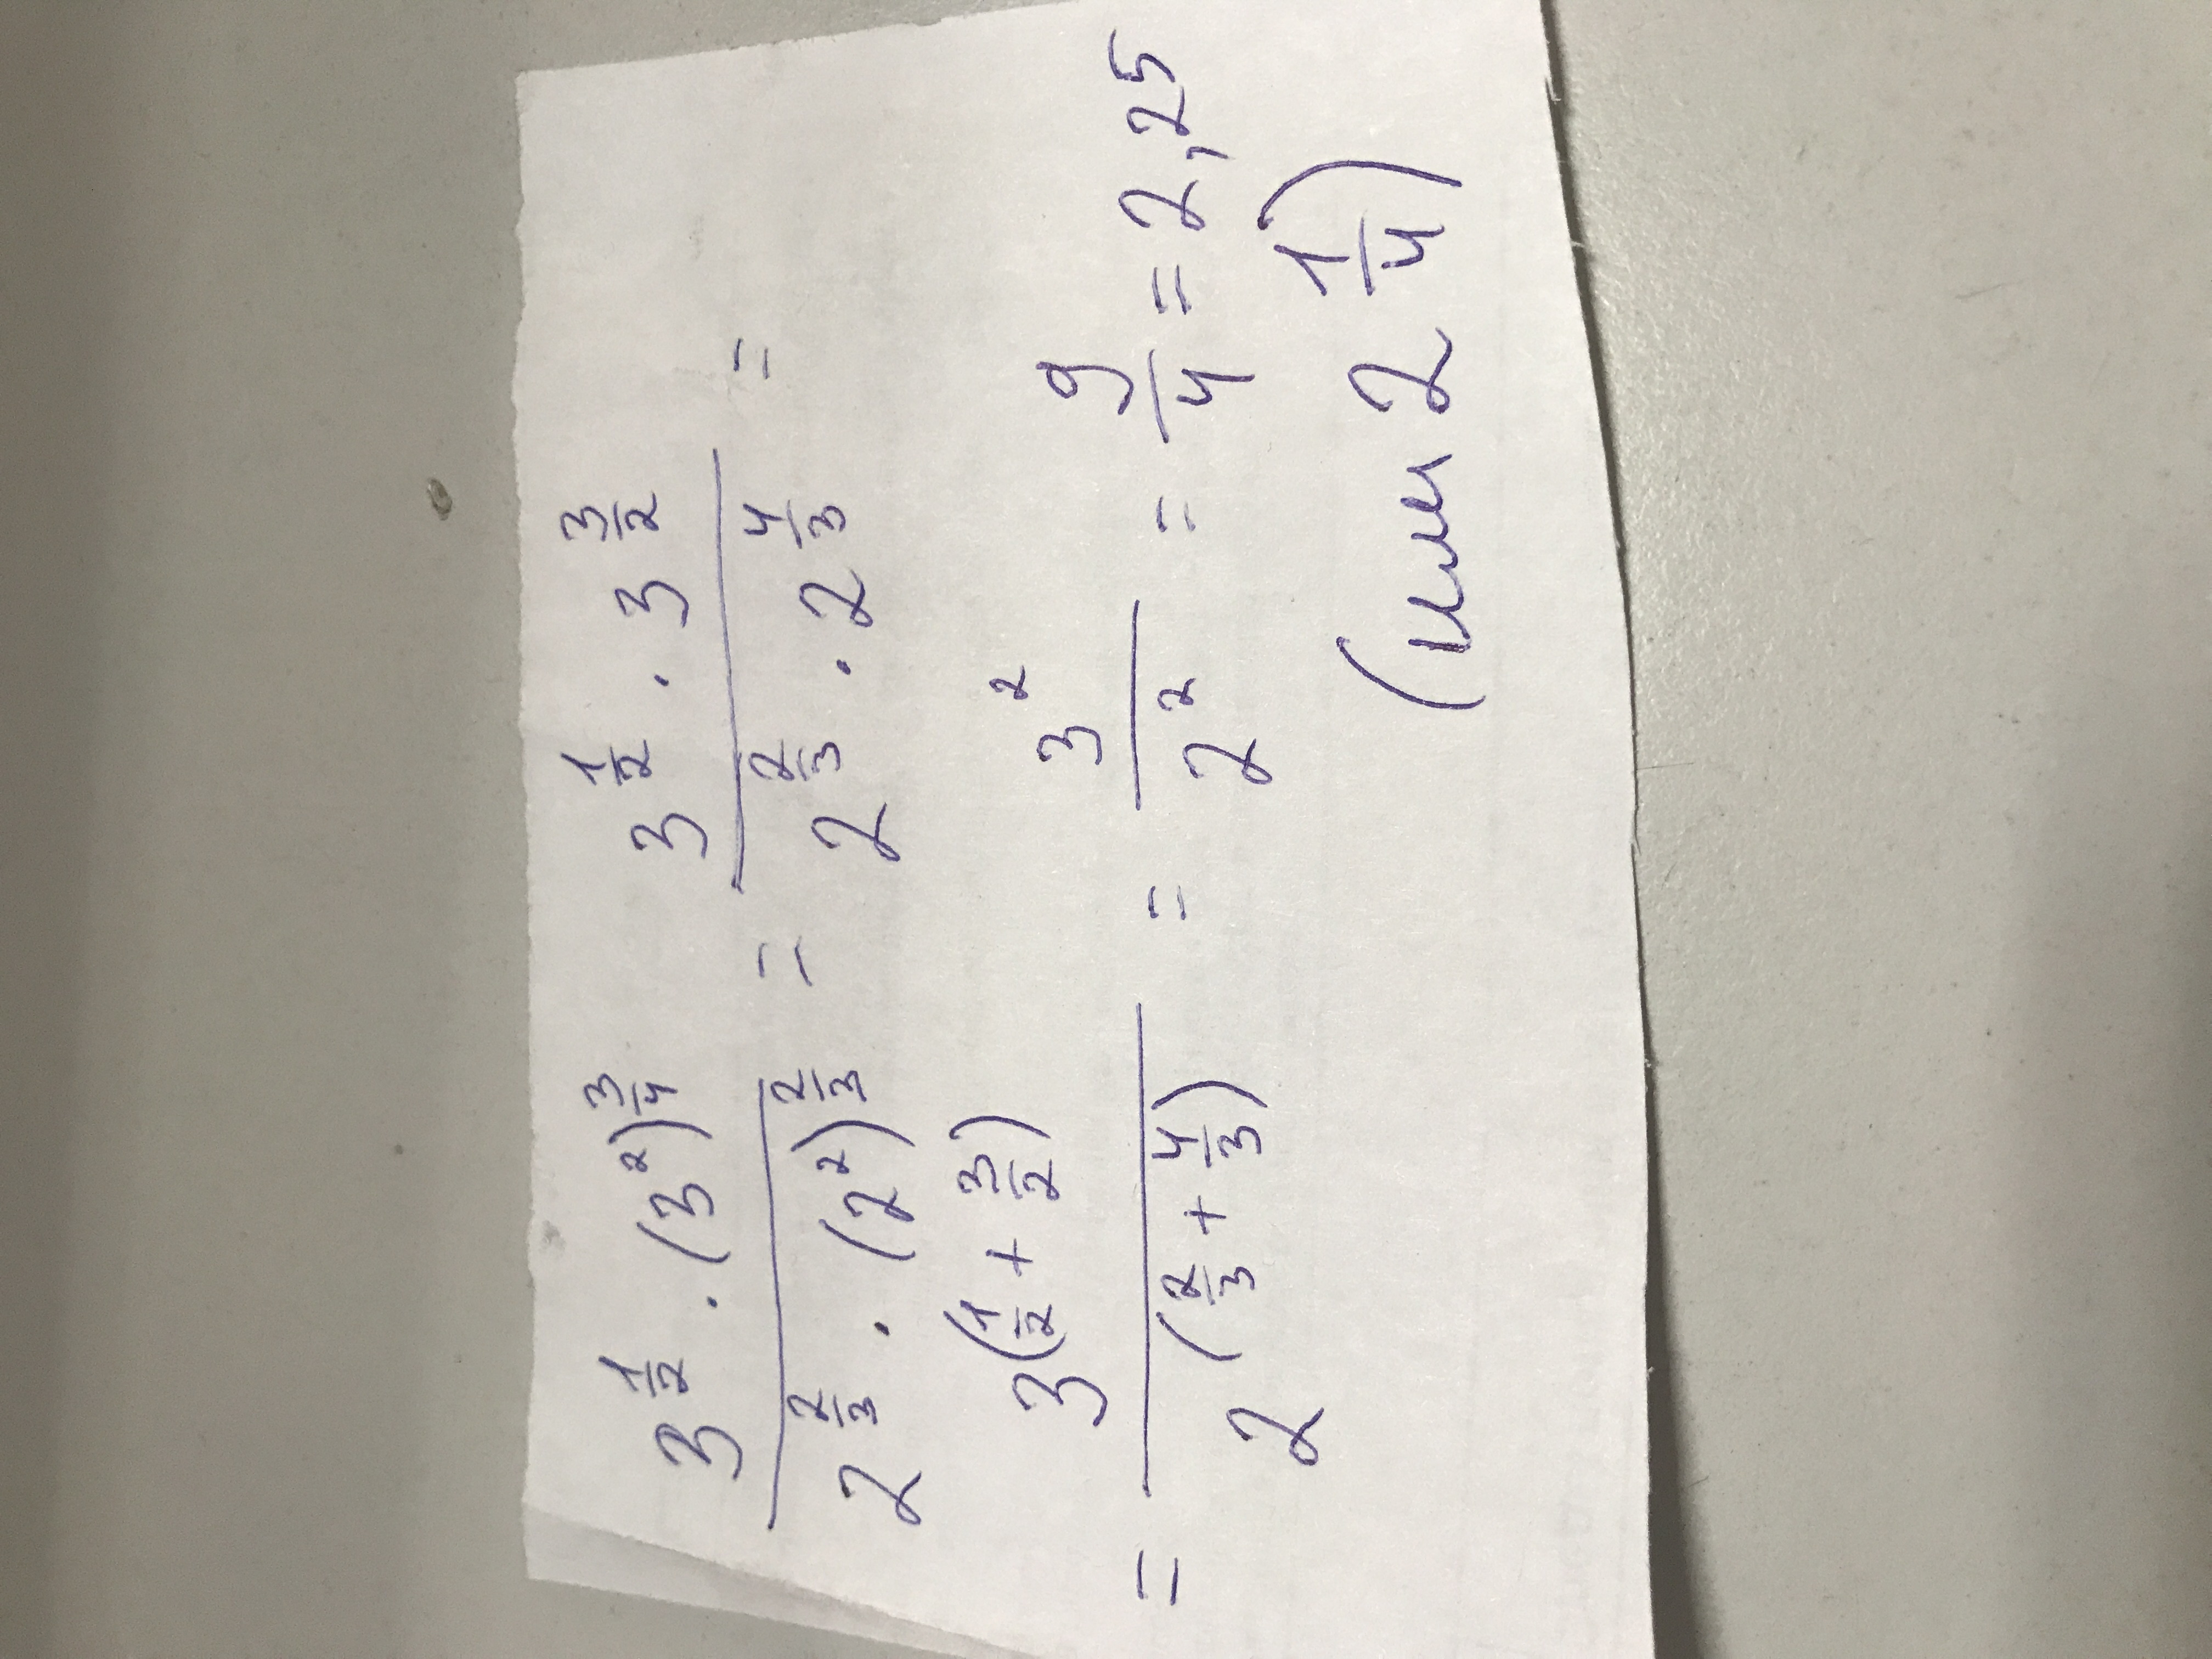 3^(1/2) · (3²)^(3/4) / 2^(2/3) · (2²)^(2/3) = 3^(1/2) · 3^(3/2) / 2^(2/3) · 2^(4/3) =
= 3^(1/2 + 3/2) / 2^(2/3 + 4/3) = 3² / 2² = 9/4 = 2,25
(или 2 1/4)